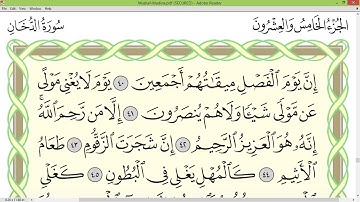 Mushaf-Madina.pdf (SECURED) - Adobe Reader
الجزء الخامس والعشرون
سورة الدخان
إِنَّ يَوْمَ ٱلْفَصْلِ مِيقَٰتُهُمْ أَجْمَعِينَ ٤٠ يَوْمَ لَا يُغْنِي مَوْلًى
عَن مَّوْلًى شَيْـًٔا وَلَا هُمْ يُنصَرُونَ ٤١ إِلَّا مَن رَّحِمَ ٱللَّهُۚ
إِنَّهُۥ هُوَ ٱلْعَزِيزُ ٱلرَّحِيمُ ٤٢ إِنَّ شَجَرَتَ ٱلزَّقُّومِ ٤٣ طَعَامُ
ٱلْأَثِيمِ ٤٤ كَٱلْمُهْلِ يَغْلِي فِي ٱلْبُطُونِ ٤٥ كَغَلْيِ